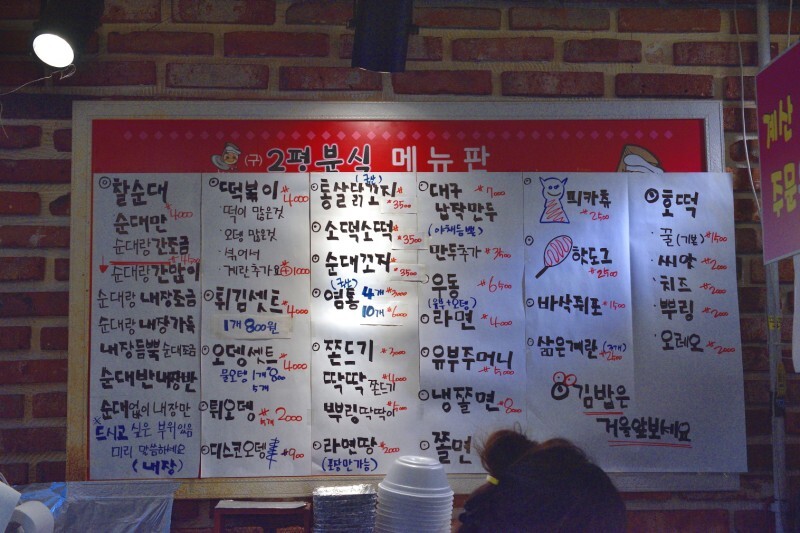 (구) 2평분식 메뉴판
찰순대
*4000
순대만
순대랑 간조금
*4500
순대랑 간많이
순대랑 내장조금
순대랑 내장가득
내장듬뿍 순대조금
순대반 내장반
순대없이 내장만
드시고 싶은 부위있음
미리 말씀하세요
(내장)
떡볶이 *4000
떡이 많은것
오뎅 많은것
섞어서
계란추가요 1000
튀김셋트 *4000
1개 800원
오뎅셋트 *4000
물오뎅 1개 800
5개
튀오뎅 *2000
디스코오뎅
통살닭꼬지 *3500
소떡소떡 *3500
순대꼬지 *3500
염통 4개 *3000
10개 *6000
쫀드기 *3000
딱딱쫀드기
뿌링 딱딱이
라면땅 *2000
(포장만가능)
대구 *7000
납작만두
(야채듬뿍)
만두추가 *3500
우동 *6500
라면 *4000
유부주머니 *5000
냉쫄면
쫄면
피카츄 *2500
핫도그 *2500
바삭쥐포 *1500
삶은계란
김밥은
거울앞보세요
호떡
꿀(기본) *1500
씨앗 *2000
치즈 *2000
뿌링 *2000
오레오 *2000
계산
주문